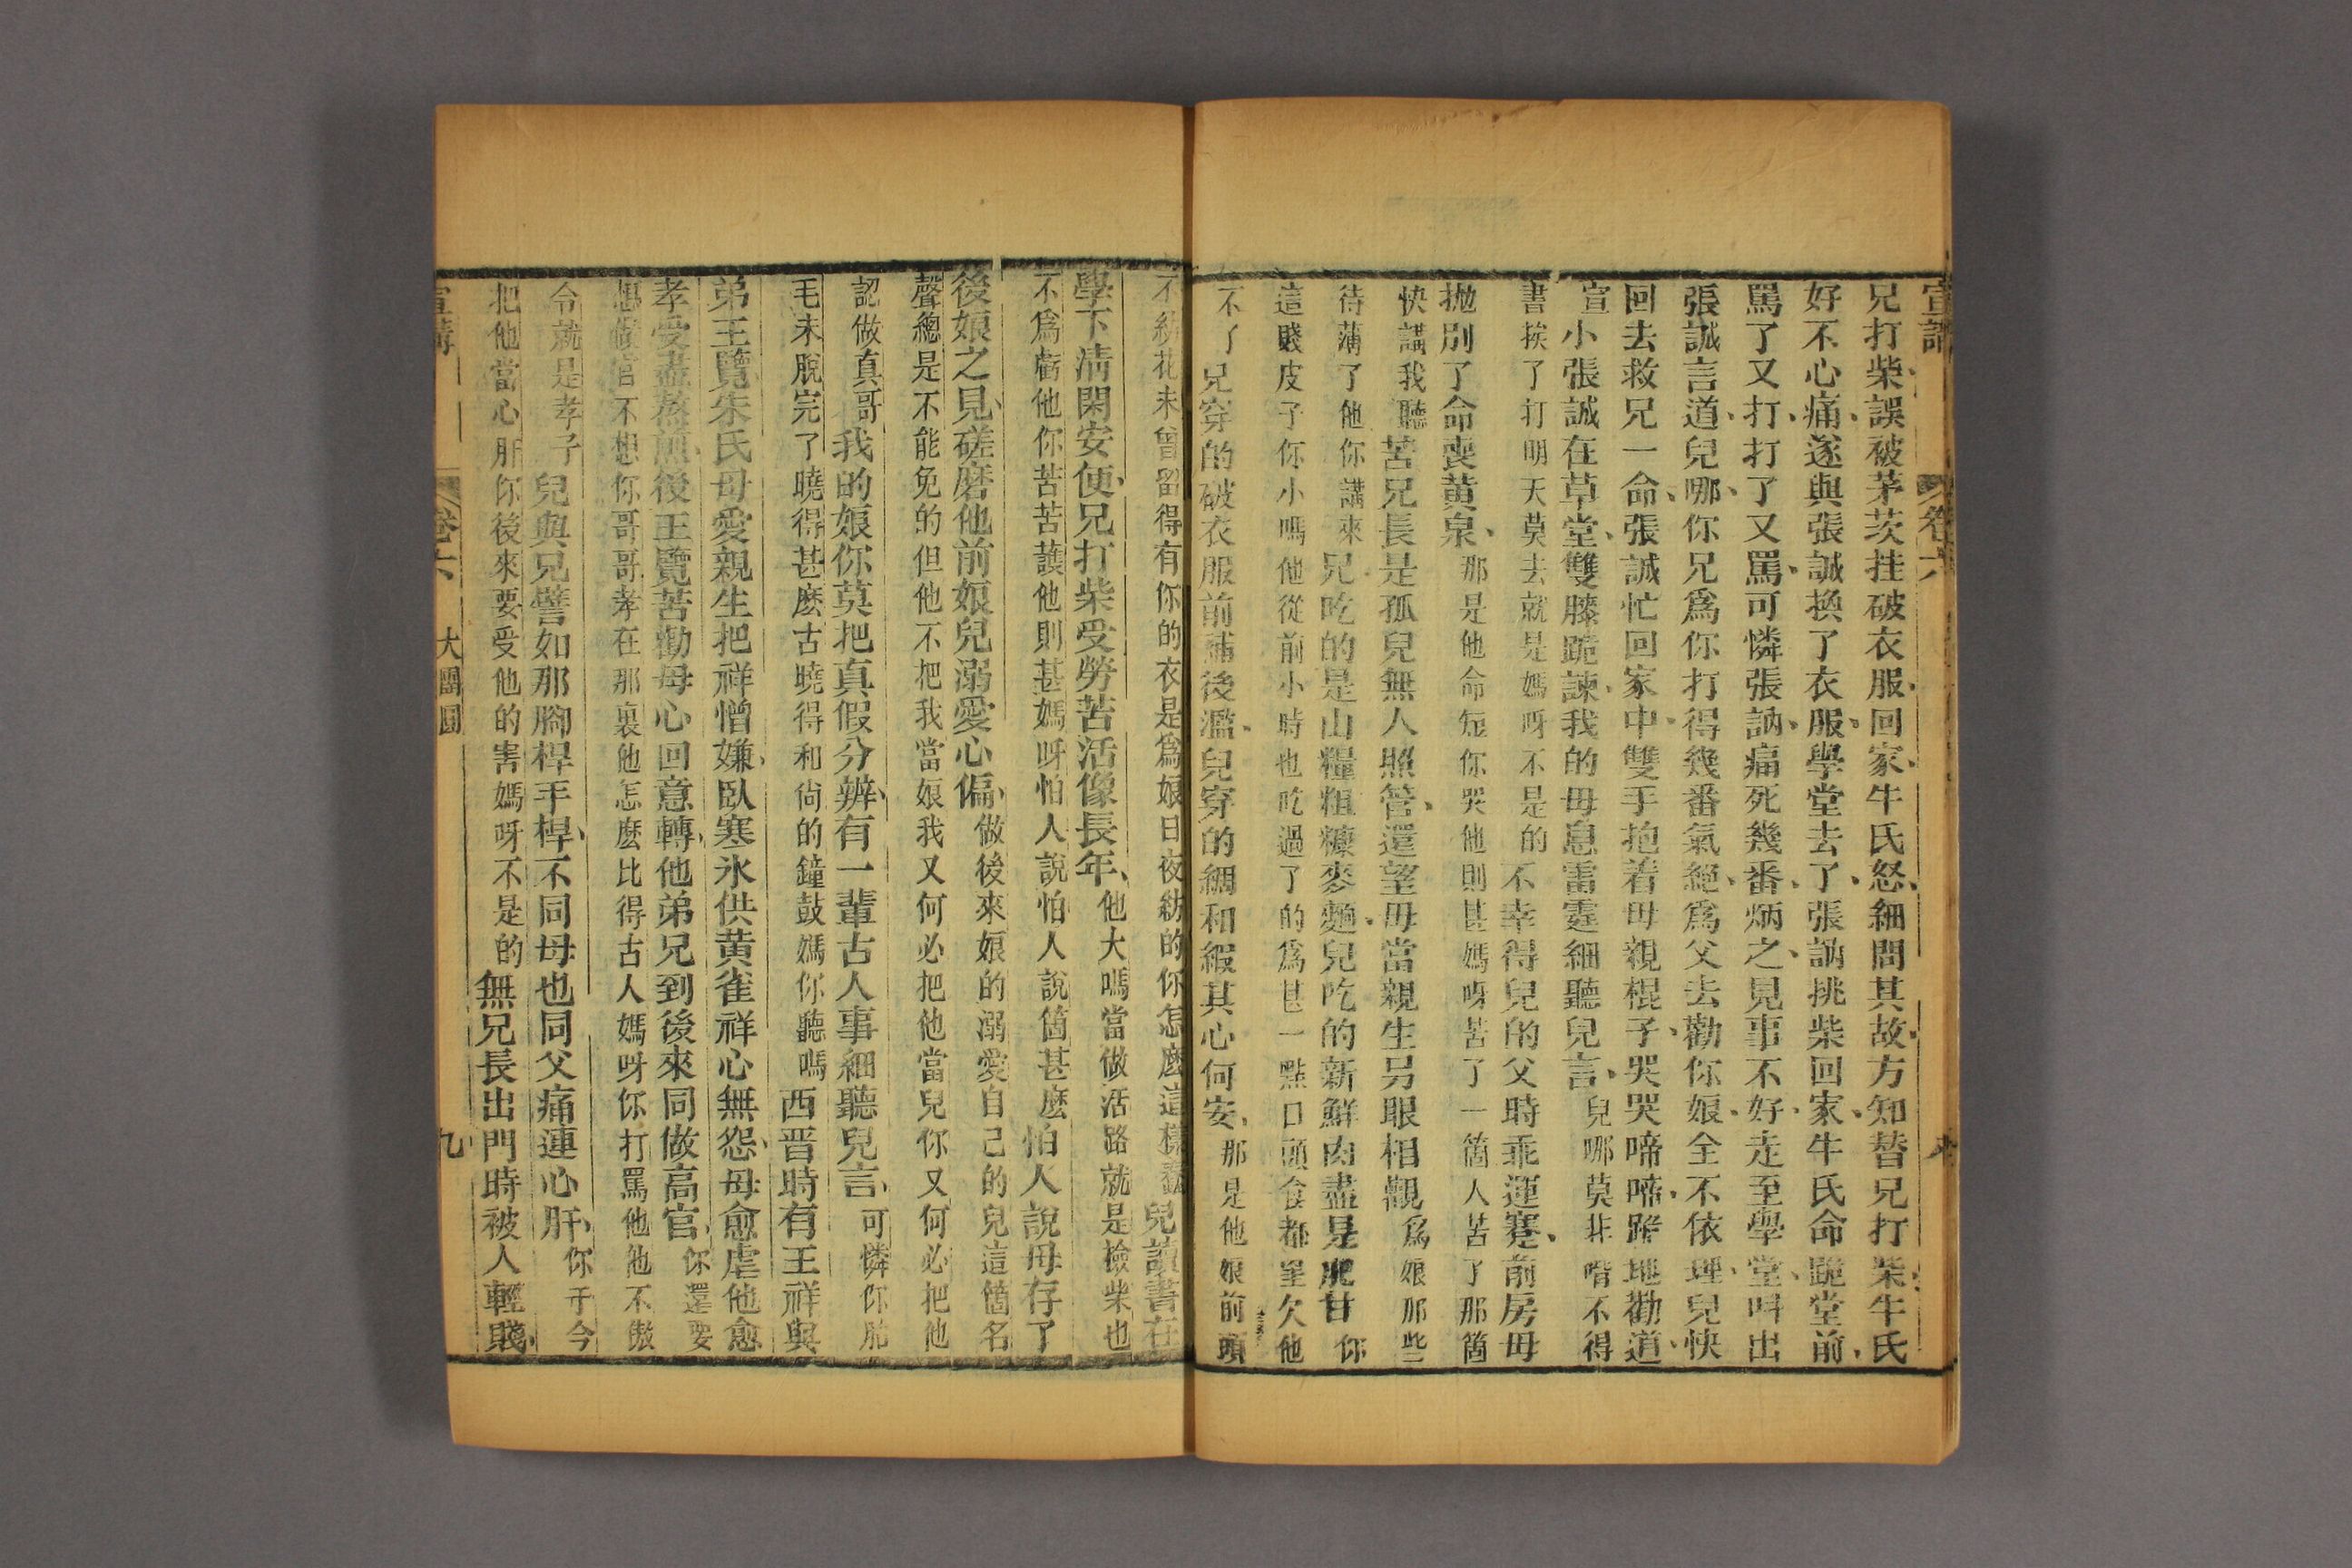 宣講 卷六
兄打柴誤被茅茨挂破衣服回家牛氏怒細問其故方知替兄打柴牛氏
好不心痛遂與張誠換了衣服學堂去了張訥挑柴回家牛氏命跪堂前
罵了又打打了又罵可憐張訥痛死幾番炳之見事不好走至學堂叫出
張誠言道兒哪你兄爲你打得幾番氣絕爲父去勸你娘全不依理兒快
回去救兄一命張誠忙回家中雙手抱着母親棍子哭哭啼啼跪地勸道
宣小張誠在草堂雙膝跪諫我的母息雷霆細聽兒言兒哪莫非嘴不得
書挨了打明天莫去就是媽呀不是的不幸得兒的父時乖運蹇前房母
拋別了命喪黄泉那是他命短你哭他則甚媽呀苦了一箇人苦了那箇
快講我聽苦兄長是孤兒無人照管還望母當親生另眼相觀爲娘那些
待薄了他你講來兒吃的是山糧粗糠麥麵兒吃的新鮮肉盡是肥甘你
這賤皮子你小嗎他從前小時也吃過了的爲甚一點口頭食都呈欠他
不了兄穿的破衣服前補後濫兒穿的綢和緞其心何安那是他娘前頭
不紡花未曾留得有你的衣是爲娘日夜紡的你怎麽這樣蠢兒讀書在
學下清閑安便兄打柴受勞苦活像長年他大嗎當做活路就是撿柴也
不爲虧他你苦苦護他則甚媽呀怕人說怕人說箇甚麽怕人說母存了
後娘之見磋磨他前娘兒溺愛心偏做後來娘的溺愛自己的兒這箇名
聲總是不能免的但他不把我當娘我又何必把他當兒你又何必把他
認做真哥我的娘你莫把真假分辨有一輩古人事細聽兒言可憐你胎
毛未脫完了曉得甚麽古曉得和尙的鐘鼓媽你聽嗎西晋時有王祥與
弟王覽朱氏母愛親生把祥憎嫌臥寒氷供黄雀祥心無怨母愈虐他愈
孝受盡熬煎後王覽苦勸母心回意轉他弟兄到後來同做高官你還要
想做官不想你哥哥孝在那裏他怎麽比得古人媽呀你打罵他他不傲
令就是孝子兒與兄譬如那脚桿手桿不同母也同父痛連心肝你于今
把他當心肝你後來要受他的害媽呀不是的無兄長出門時被人輕賤
宣講 卷六 大團圓 九